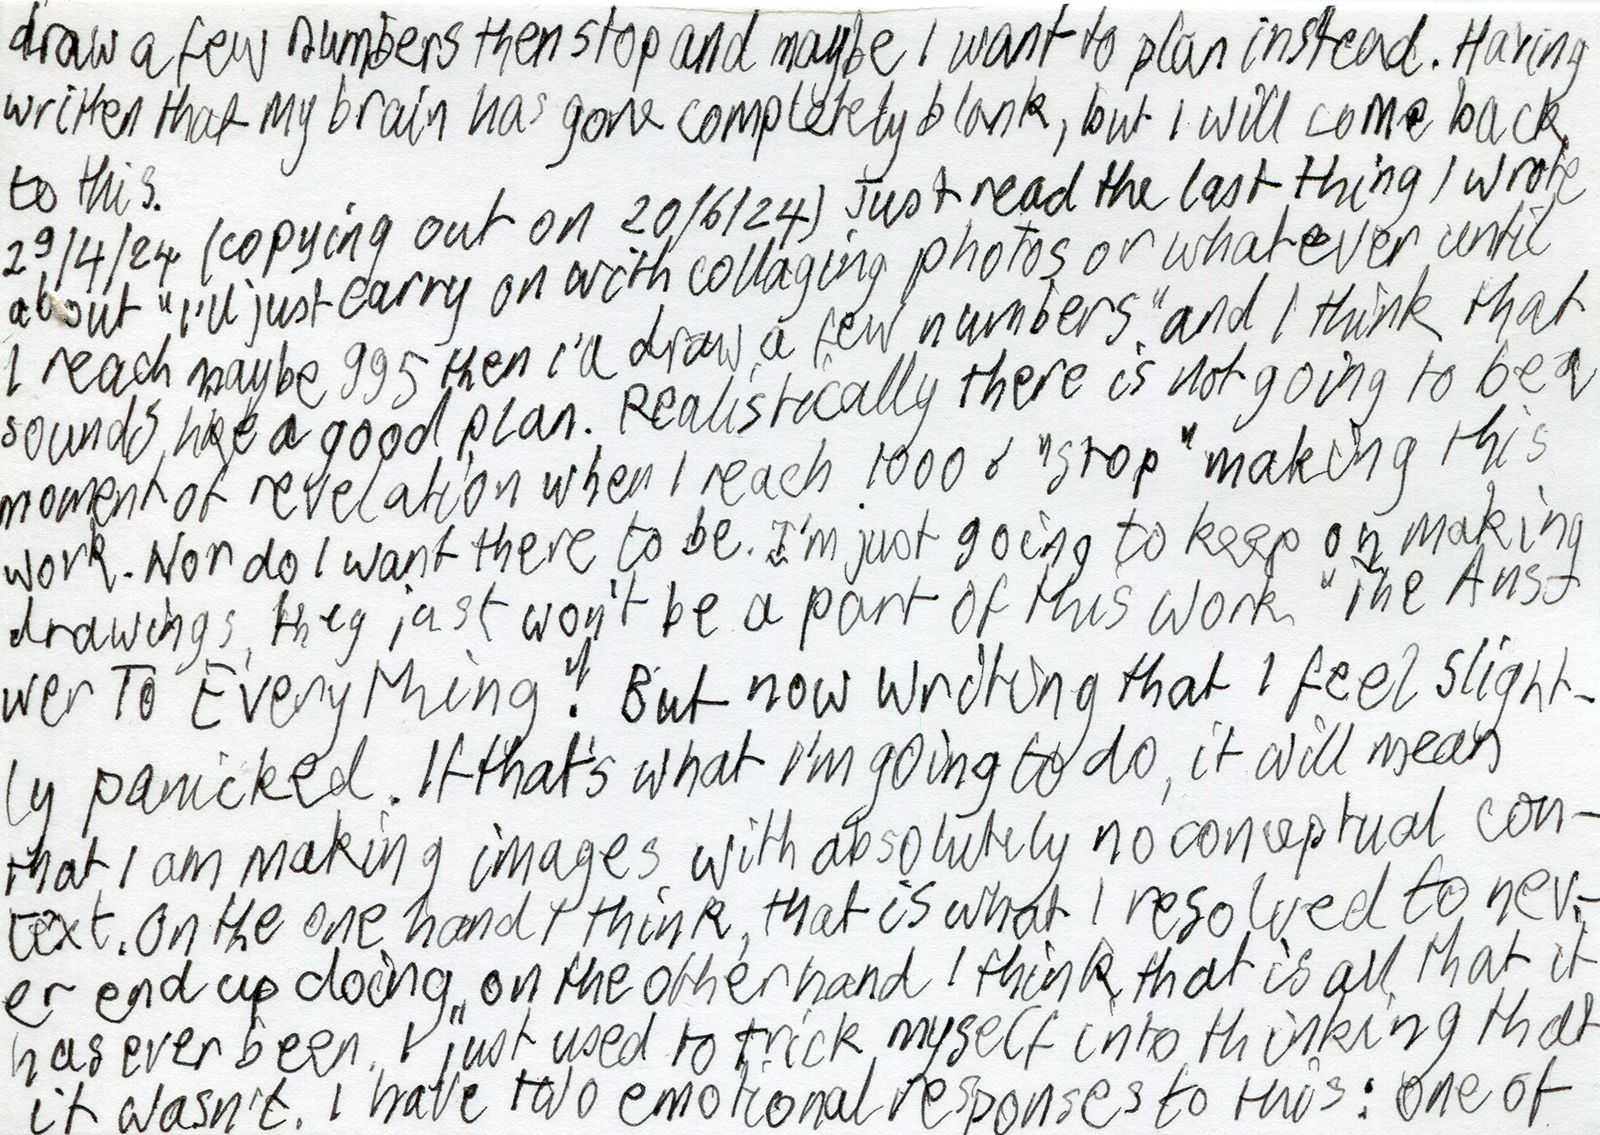 draw a few numbers then stop and maybe I want to plan instead. Having
written that my brain has gone completely blank, but I will come back
to this.
29/4/24 (copying out on 20/6/24) Just read the last thing I wrote
about "I'll just carry on with collaging photos or whatever until
I reach maybe 995 then I'd draw a few numbers" and I think that
sounds like a good plan. Realistically there is not going to be a
moment of revelation when I reach 1000 & "stop" making this
work. Nor do I want there to be. I'm just going to keep on making
drawings, they just won't be a part of this work "The Ans-
wer To Everything"! But now writing that I feel slight-
ly panicked. If that's what I'm going to do, it will mean
that I am making images with absolutely no conceptual con-
text. On the one hand I think, that is what I resolved to nev-
er end up doing, on the other hand I think that is all that it
has ever been. I just used to trick myself into thinking that
it wasn't. I have two emotional responses to this: one of